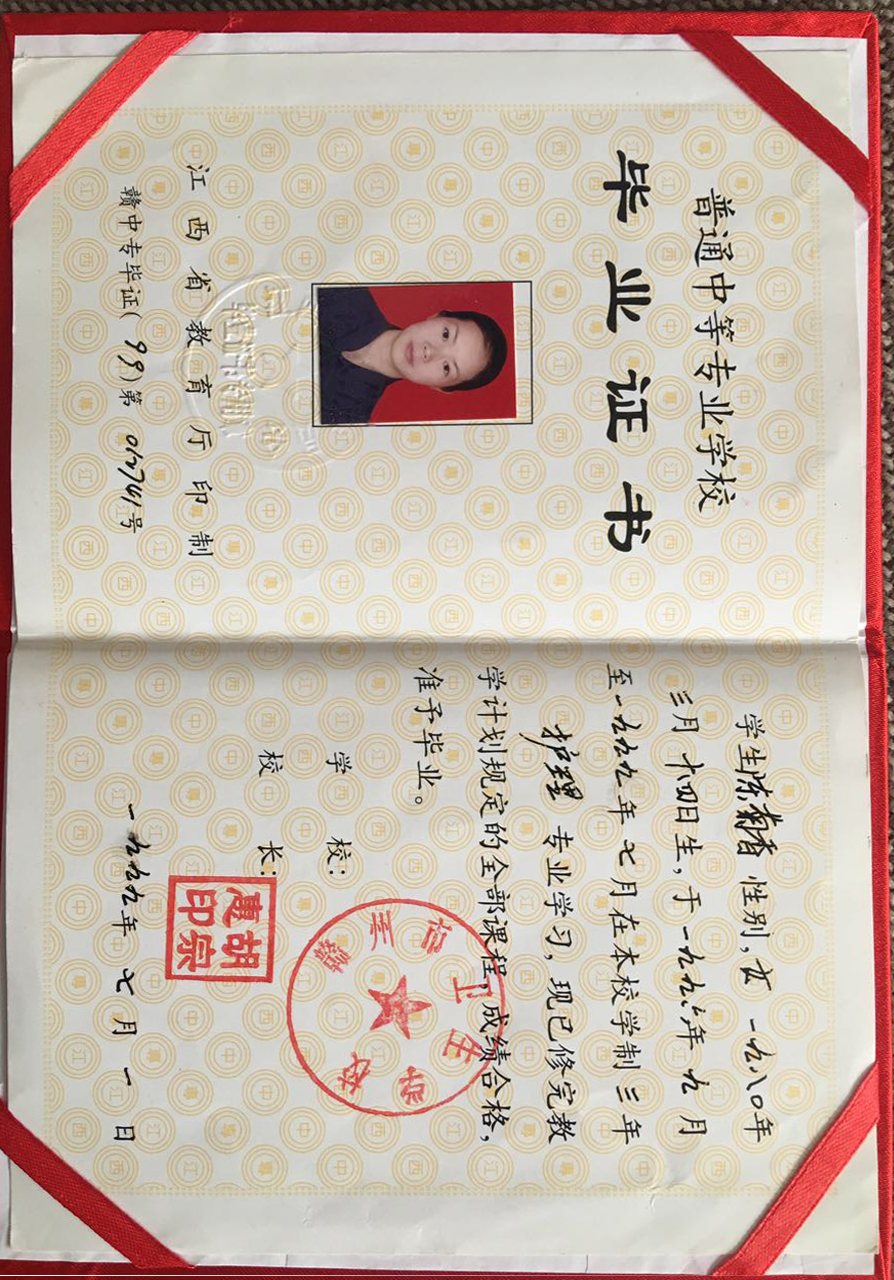 普通中等专业学校
毕业证书
江西省教育厅印制
赣中专毕证(99)第012741号
学生陈菊香 性别，女 一九八〇年
三月十四日生，于一九九六年九月
至一九九九年七月在本校学制三年
护理 专业学习，现已修完教
学计划规定的全部课程，成绩合格，
准予毕业。
学 校：
卫生学校
校 长：
胡宗惠印
一九九九年七月一日